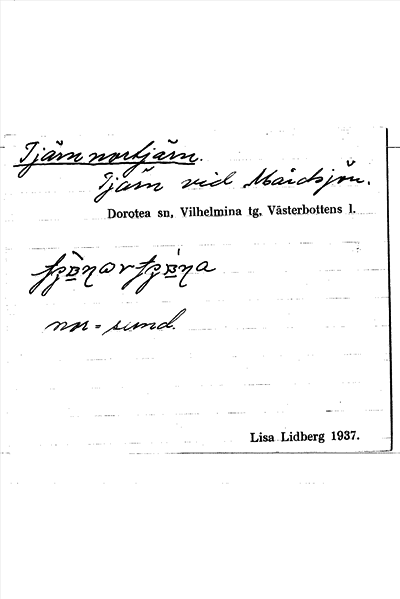 Tjärnnortjärn.
Tjärn vid Mårdsjön.
Dorotea sn, Vilhelmina tg, Västerbottens l.
nor = sund.
Lisa Lidberg 1937.